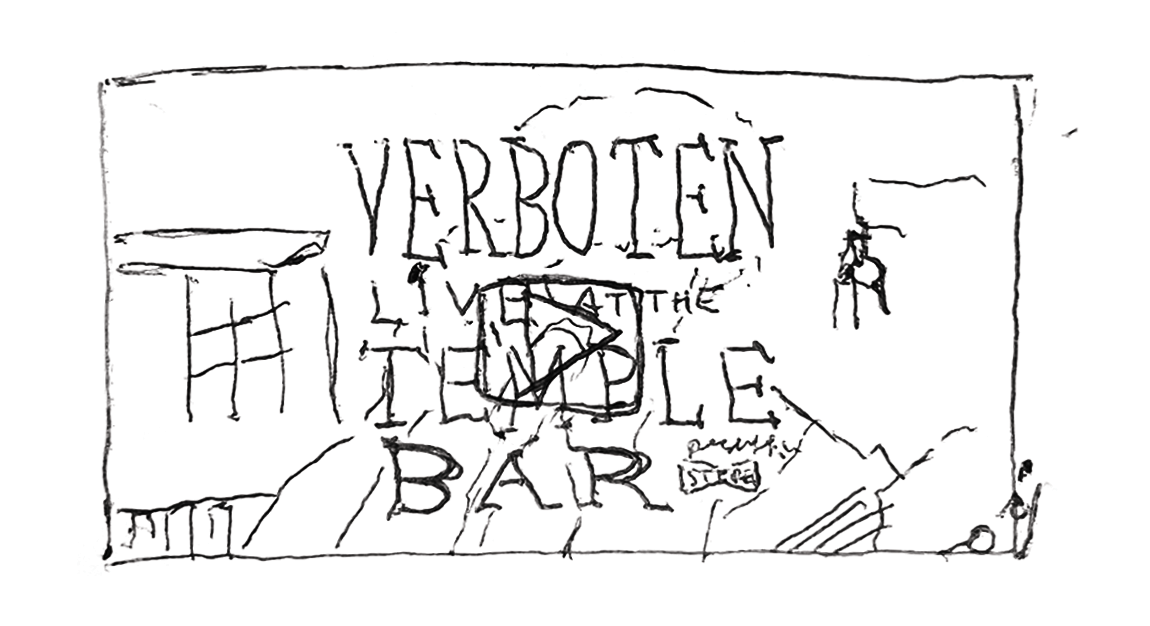 VERBOTEN
LIVE AT THE
TEMPLE
BAR